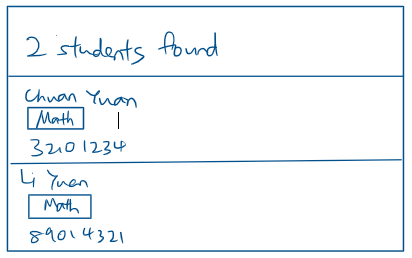 2 students found
Chuan Yuan
Math
32101234
Li Yuan
Math
89014321